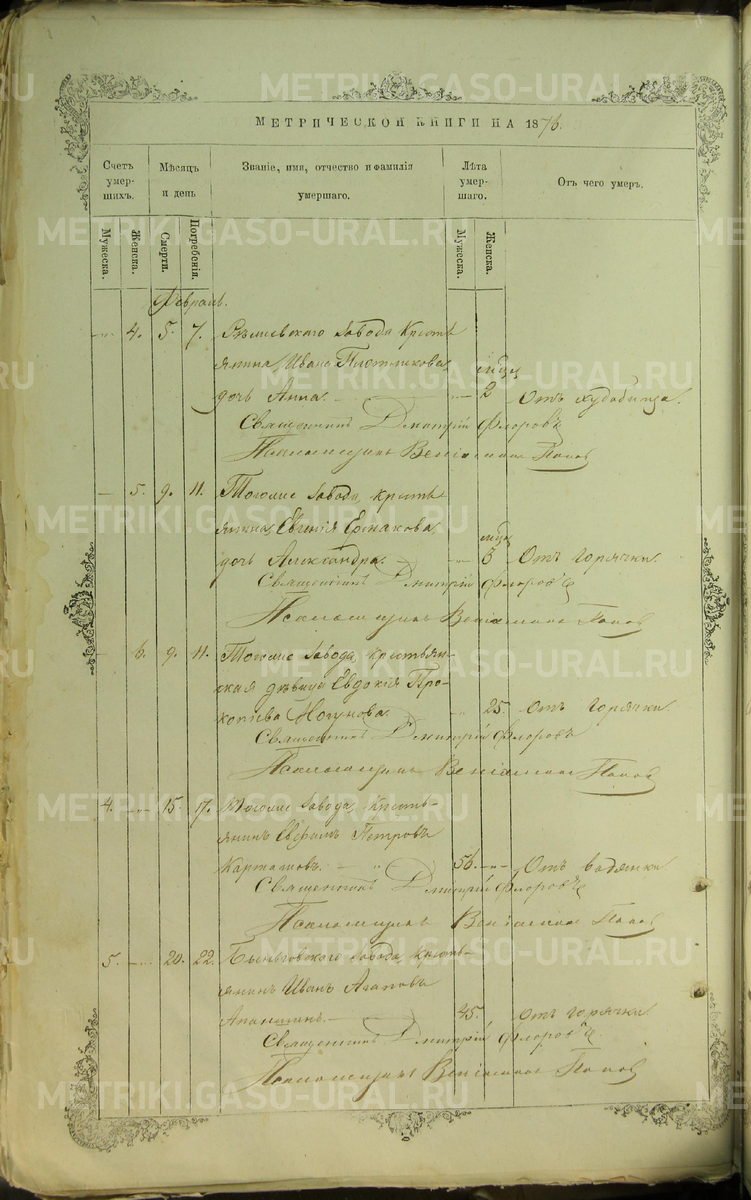 METRIKI.GASO-URAL.RU
МЕТРИЧЕСКОЙ КНИГИ НА 1876.
Счетъ умершихъ.
Мѣсяцъ и день
Званіе, имя, отчество и фамилія умершаго.
Лѣта умершаго.
Отъ чего умеръ.
Мужеска.
Женска.
Смерти.
Погребенія.
Мужеска.
Женска.
Февраль.
4. 5. 7. завода кресть
янина Ивана Плотникова
дочь Анна. 2 Отъ
Священникъ Дмитрій Флоровъ
Псаломщикъ Веніаминъ Поповъ
5. 9. 11. Тогоже завода, кресть
янина Евгенія Ермакова
дочь Александра. 5 Отъ горячки.
Священникъ Дмитрій Флоровъ
Псаломщикъ Веніаминъ Поповъ
6. 9. 11. Тогоже завода, крестьян
ская дѣвица Евдокія Про
копіева 25. Отъ горячки.
Священникъ Дмитрій Флоровъ
Псаломщикъ Веніаминъ Поповъ
4. 15. 17. Тогоже завода, кресть
янинъ Ефимъ Петровъ
Карташовъ. 56. Отъ водянки
Священникъ Дмитрій Флоровъ
Псаломщикъ Веніаминъ Поповъ
5. 20. 22. Быньговскаго завода, кресть
янинъ Иванъ Агаповъ
45. Отъ горячки
Священникъ Дмитрій Флоровъ
Псаломщикъ Веніаминъ Поповъ